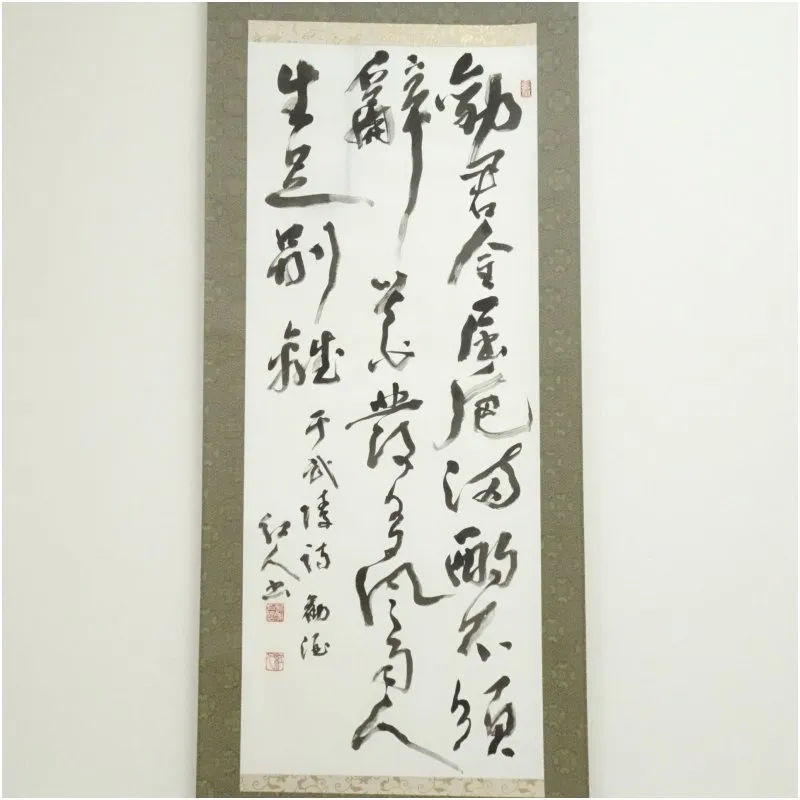 勧君金屈巵満酌不須
辞花發多風雨人
生足別離
于武陵詩 勧酒
紅人書